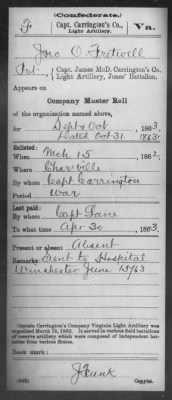 (Confederate.)
F Capt. Carrington's Co., Va.
Light Artillery.
Jno O. Fretwell
Pvt, Capt. James McD. Carrington's Co.
Light Artillery, Jones' Battalion.
Appears on
Company Muster Roll
of the organization named above,
for Sept & Oct, 1863.
Dated Oct 31, 1863.
Enlisted:
When Mch 15, 1862.
Where Charville
By whom Capt Carrington
Period War
Last paid:
By whom Capt Lane
To what time Apr 30, 1863.
Present or absent Absent
Remarks: Sent to Hospital
Winchester June /63
Captain Carrington's Company Virginia Light Artillery was
organized March 15, 1862. It served in various field battalions
of reserve artillery which were composed of independent bat-
teries from various States.
Book mark:
J Funk
(642) Copyist.